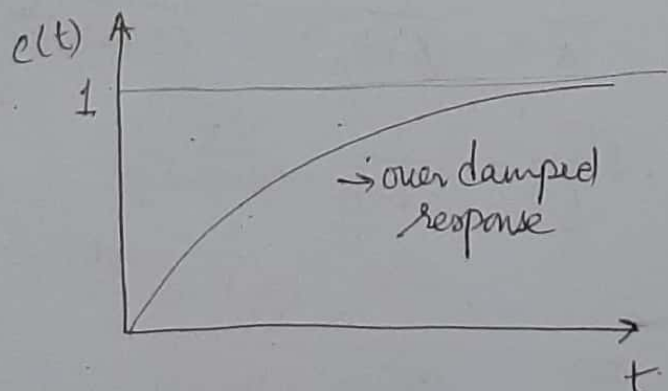 c(t)
1
→ over damped
response
t